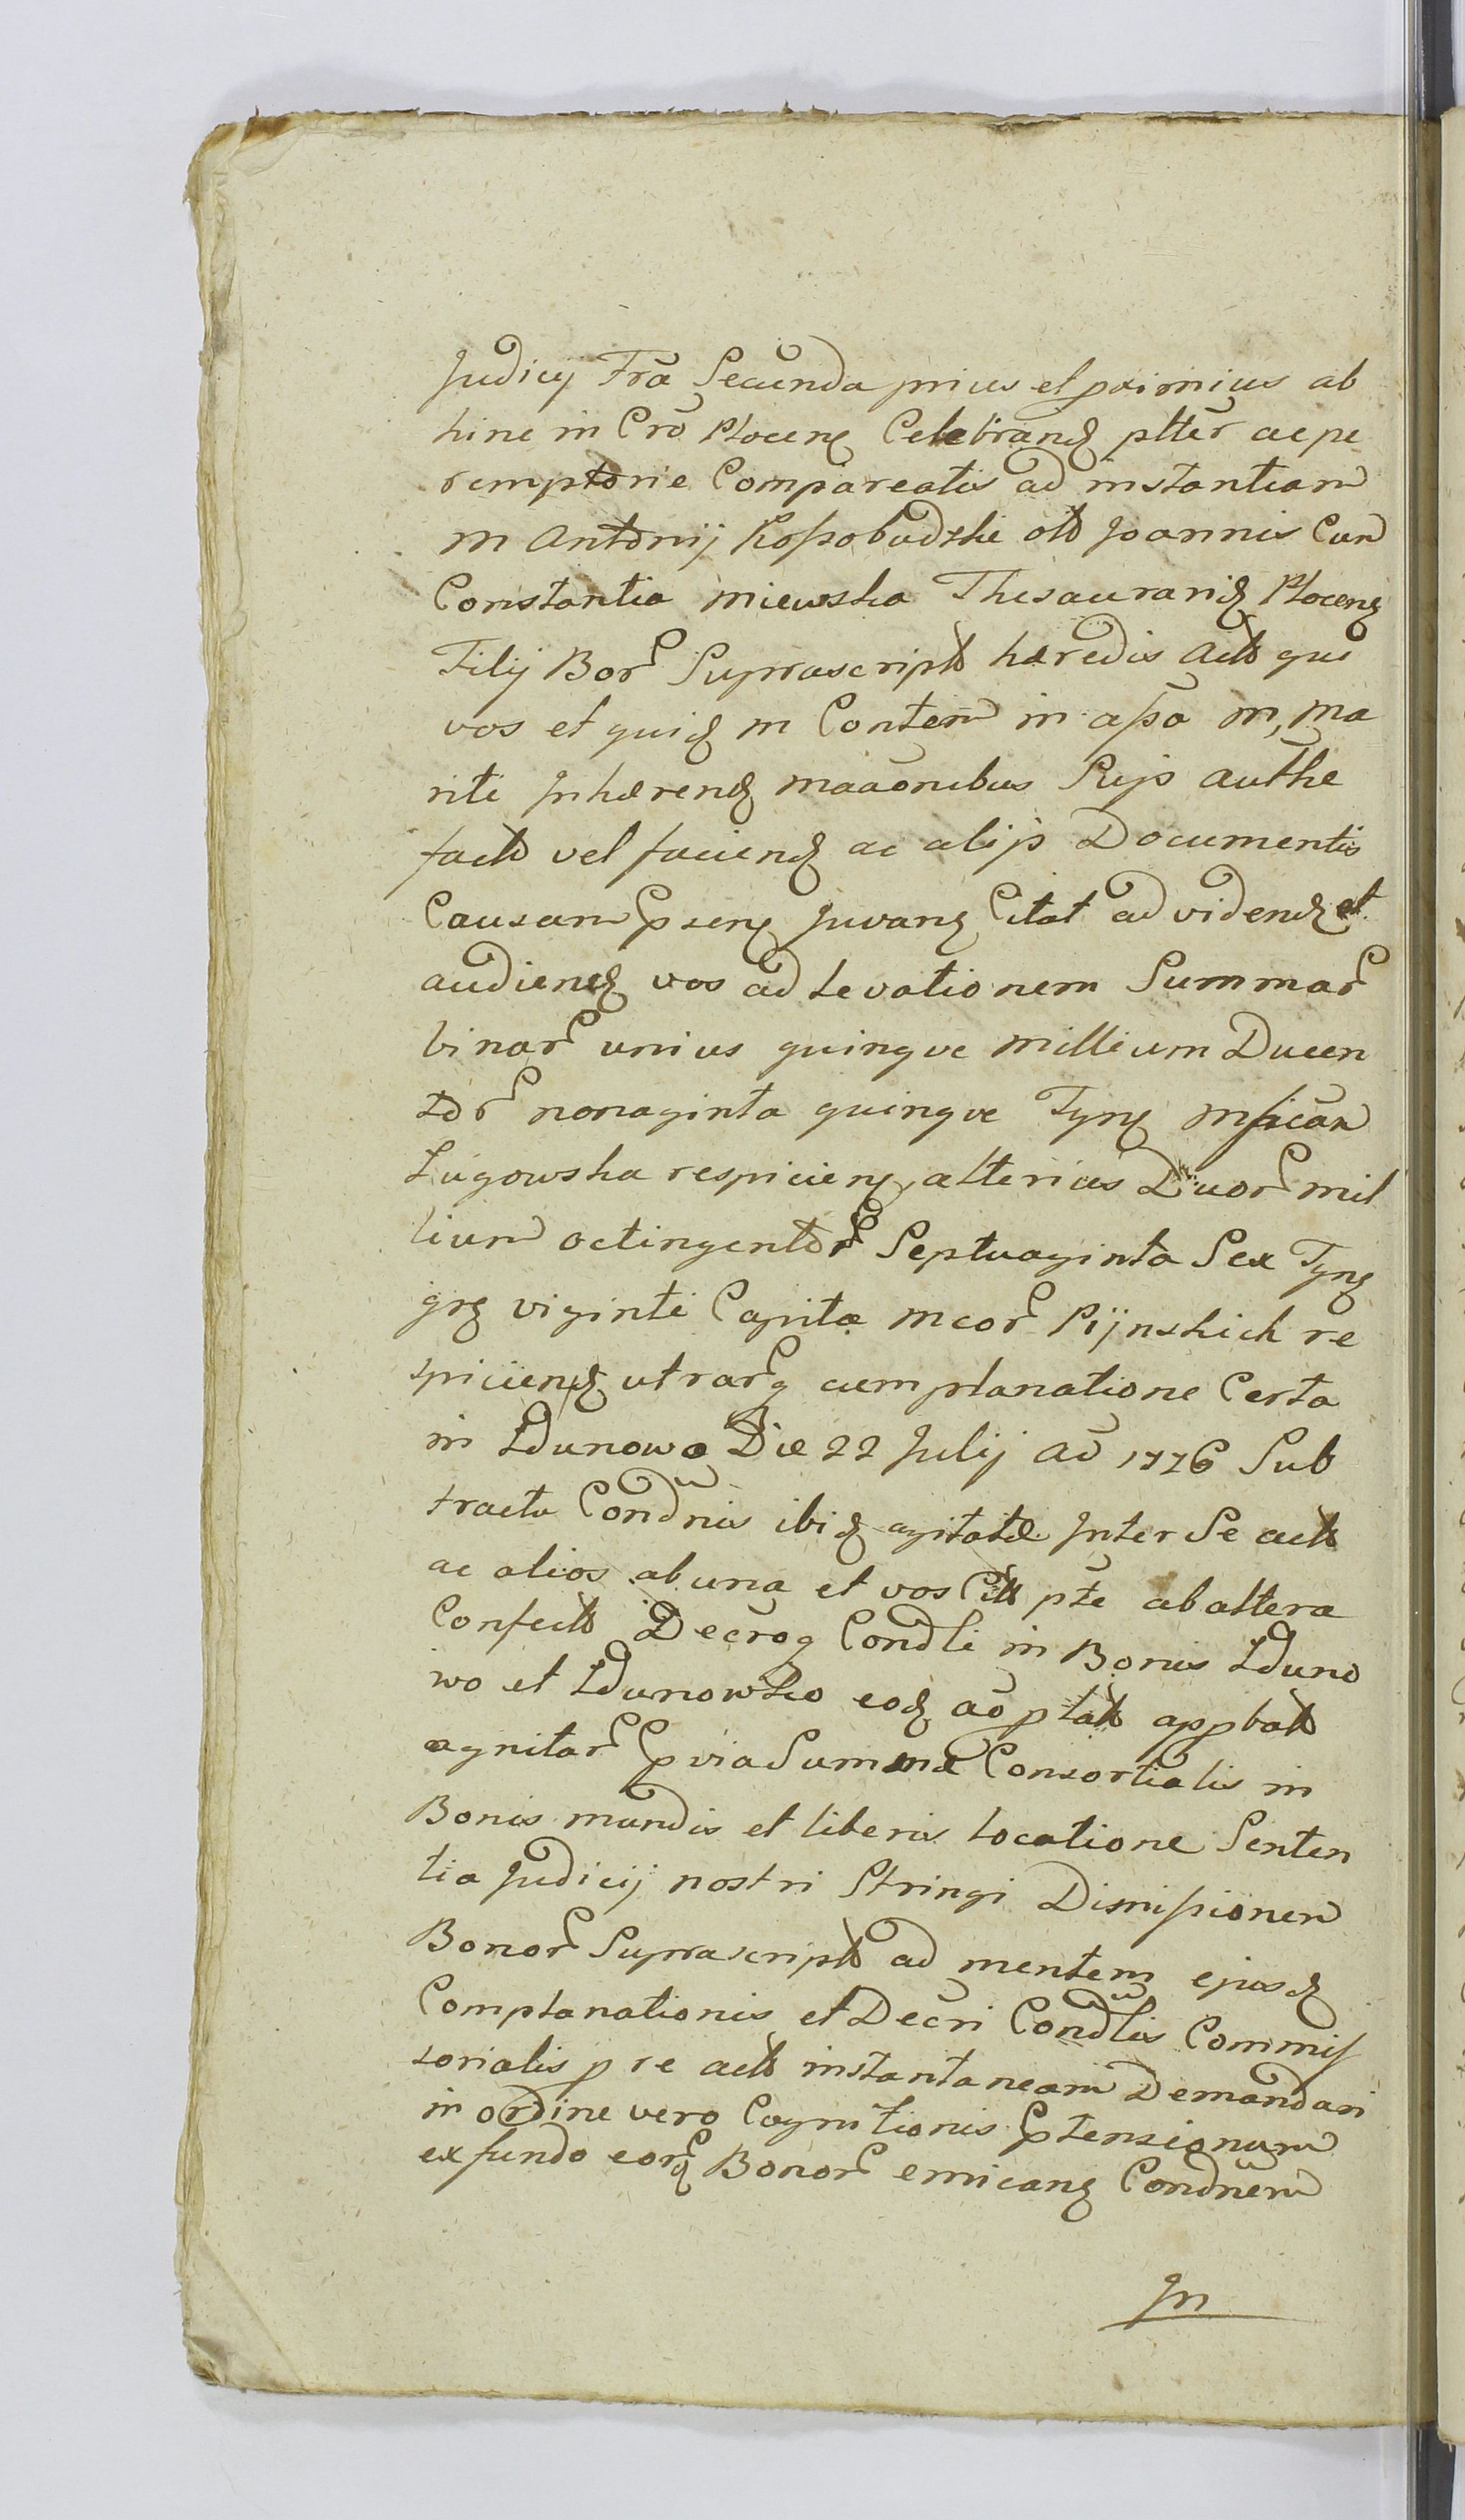 Judicij Fra Secunda prius et proximius ab
hinc in Cro Plocen Celebrand ptter ac pe
remptorie Compareatis ad instantiam
M Antonij Kossobudzki olb Joannis Cum
Constantia Miewska Thesaurarid Plocen
Filij Bor Suprascript hæredis Act qui
vos et quid M Conten in assa M, Ma
riti Inhærend maaonibus Rijs authe
fact vel faciend ac alijs Documentis
Causam psen Juvan Citat ad vidend et
audiend vos ad Levationem Summar
binar unius quinqve millium Ducen
tor nonaginta quinqve Tyn Msicam
Ługowska respicien, alterius Duor mil
lium octingentor Septuaginta Sex Tyn
grs viginti Capitæ Mcor Pijnskich re
spiciend utrarq complanatione Certa
in Zdunowo Die 22 Julij Ao 1776 Sub
tractu Condnis ibid agitatæ Inter Se act
ac alios ab una et vos Citt pte ab altera
Confect Decroq Condli in Bonis Zduno
wo et Zdunowko eod ao plat appbat
agnitar p via Summæ Consortialis in
Bonis mundis et liberis Locatione Senten
tia Judicij nostri Stringi Dimissionem
Bonor Suprascript ad mentem ejusd
Complanationis et Decri Condlis Commis
sorialis p re act instantaneam Demandari
in ordine vero Cognitionis Ptensionum
ex fundo eorq Bonor emican Condnem
In